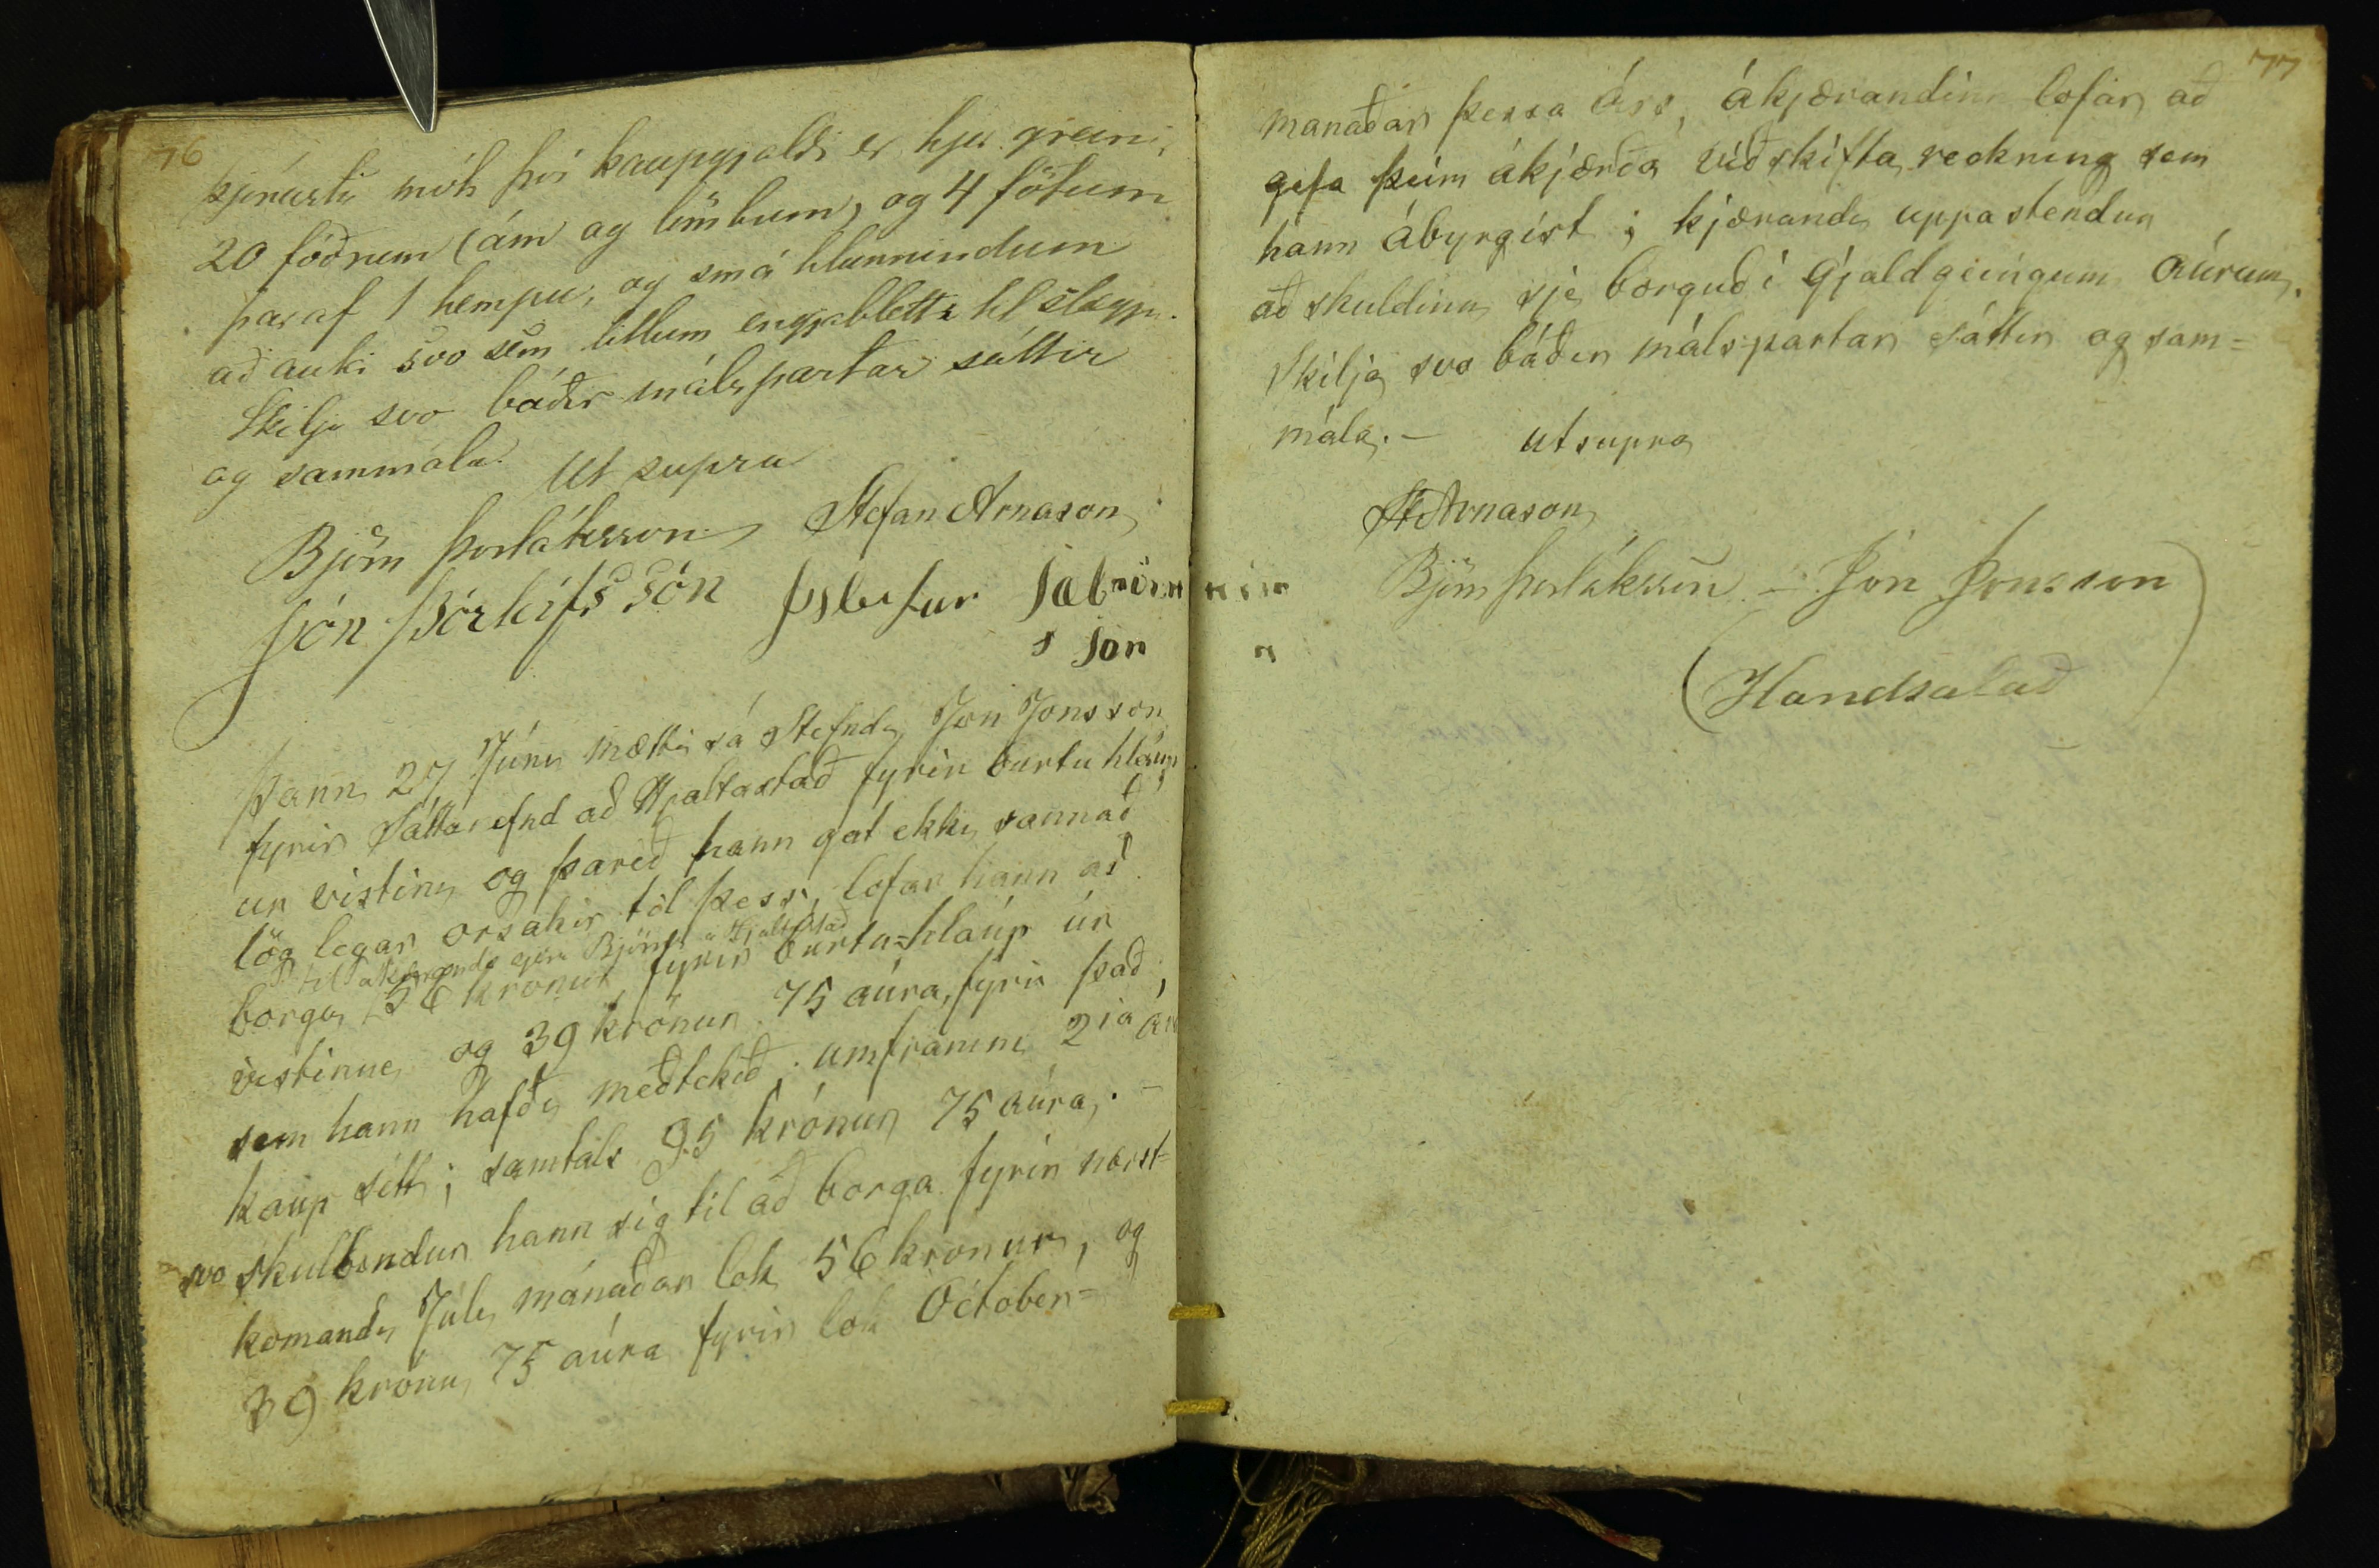 76
þjónustu mót því kaupgjaldi er hjer greini,
20 fóðrum (ám og lömbum, og 4 fötum
þar af 1 hempu, og smá hlunnindum
að auki svo sem litlum engjabletti til slægju.
Skilja svo báðir málspartar sáttir
og sammála.
Ut supra
Björn Þorláksson Stefan Arnason
Jón Þórleifs són Þsleifur Sæbiörn
s son
Þann 27 Júni mætti sá Stefndi Jón Jonsson
fyrir Sáttanefnd að Hjaltastað fyrir burtu hlaup
úr vistinni og þareð hann gat ekki sannað
löglegar orsakir til þess, lofar hann að
til ákjærandi sjera Björns á Hjaltastað
borga 56 krónur fyrir burtu=hlaup úr
vistinne og 39 krónur 75 aúra, fyrir það,
sem hann hafði meðtekið umframm 2ja ára
kaup sitt; samtals 95 krónur 75 aúra. –
svo skulbindur hann sig til að borga fyrir næst=
komandi Júlí mánaðar lok 56 krónur, og
39 krónu 75 aúra fyrir lok Octóber=
77
manaðar þessa árs, ákjærandinn lofar að
gefa þeim ákjærða viðskifta reckning sem
hann ábyrgist; kjærandi uppástendur
að skuldinn sje borguð í gjaldgeingum aúrum.
Skilja svo báðir málspartar sáttir og sam=
mála. – ut supra
St Arnason
Björn Þorláksson – Jón Jonsson
(Handsalað)